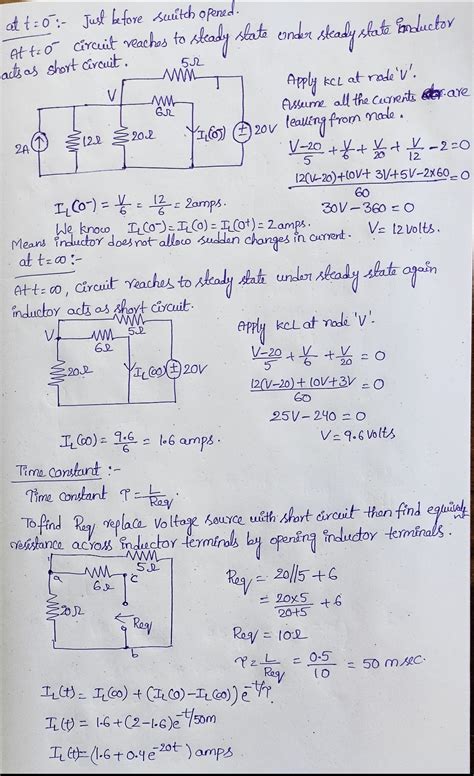 at t=0⁻:- Just before switch opened.
At t=0⁻ circuit reaches to steady state under steady state inductor
acts as short circuit.
5Ω
V
6Ω
2A
12Ω
20Ω
I_L(0⁻)
20V
Apply KCL at node 'V'.
Assume all the currents are
leaving from node.
(V-20)/5 + V/6 + V/20 + V/12 - 2 = 0
(12(V-20)+10V+3V+5V-2x60)/60 = 0
30V-360=0
V=12volts.
I_L(0⁻) = V/6 = 12/6 = 2amps.
We know I_L(0⁻)=I_L(0)=I_L(0⁺)=2amps.
Means inductor does not allow sudden changes in current.
at t=∞:-
At t=∞, circuit reaches to steady state under steady state again
inductor acts as short circuit.
5Ω
V
6Ω
20Ω
I_L(∞)
20V
Apply KCL at node 'V'.
(V-20)/5 + V/6 + V/20 = 0
(12(V-20)+10V+3V)/60 = 0
25V-240=0
V=9.6volts
I_L(∞) = 9.6/6 = 1.6 amps.
Time constant :-
Time constant τ = L/Req.
To find Req replace voltage source with short circuit then find
resistance across inductor terminals by opening inductor terminals.
5Ω
a
6Ω
c
20Ω
Req
b
Req = 20//5 + 6
= (20x5)/(20+5) + 6
Req = 10Ω
τ = L/Req = 0.5/10 = 50 msec.
I_L(t) = I_L(∞) + (I_L(0)-I_L(∞)) e^(-t/τ).
I_L(t) = 1.6+(2-1.6)e^(-t/50m)
I_L(t)=(1.6+0.4e^(-20t)) amps.